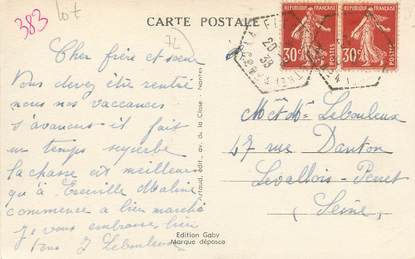 383
lot
72
CARTE POSTALE
RÉPUBLIQUE FRANÇAISE
30c
POSTES
RÉPUBLIQUE FRANÇAISE
30c
POSTES
20
38
Cher frère et soeur
Vous devez être rentré
nous nos vaccances
s'avances il fait
un temps superbe
la chasse est meilleurs
qu'à Treuville Maline
commence a bien marché
Je vous embrasse bien
tous J Lebouleux
Artaud, édit. av. de la Close - Nantes
Mr et Me Lebouleux
47 rue Danton
Levallois-Perret
Seine
Edition Gaby
Marque déposée